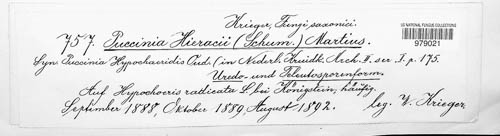 Krieger, Fungi saxonici.
US NATIONAL FUNGUS COLLECTIONS
979021
757. Puccinia Hieracii (Schum.) Martius.
Syn. Puccinia Hypochaeridis Oud. (in Nederl. Kruidk. Arch. II. ser. I. p. 175.
Uredo- und Teleutosporenform.
Auf Hypochoeris radicata L. bei Königstein, häufig.
September 1888, Oktober 1889, August 1892. leg. W. Krieger.